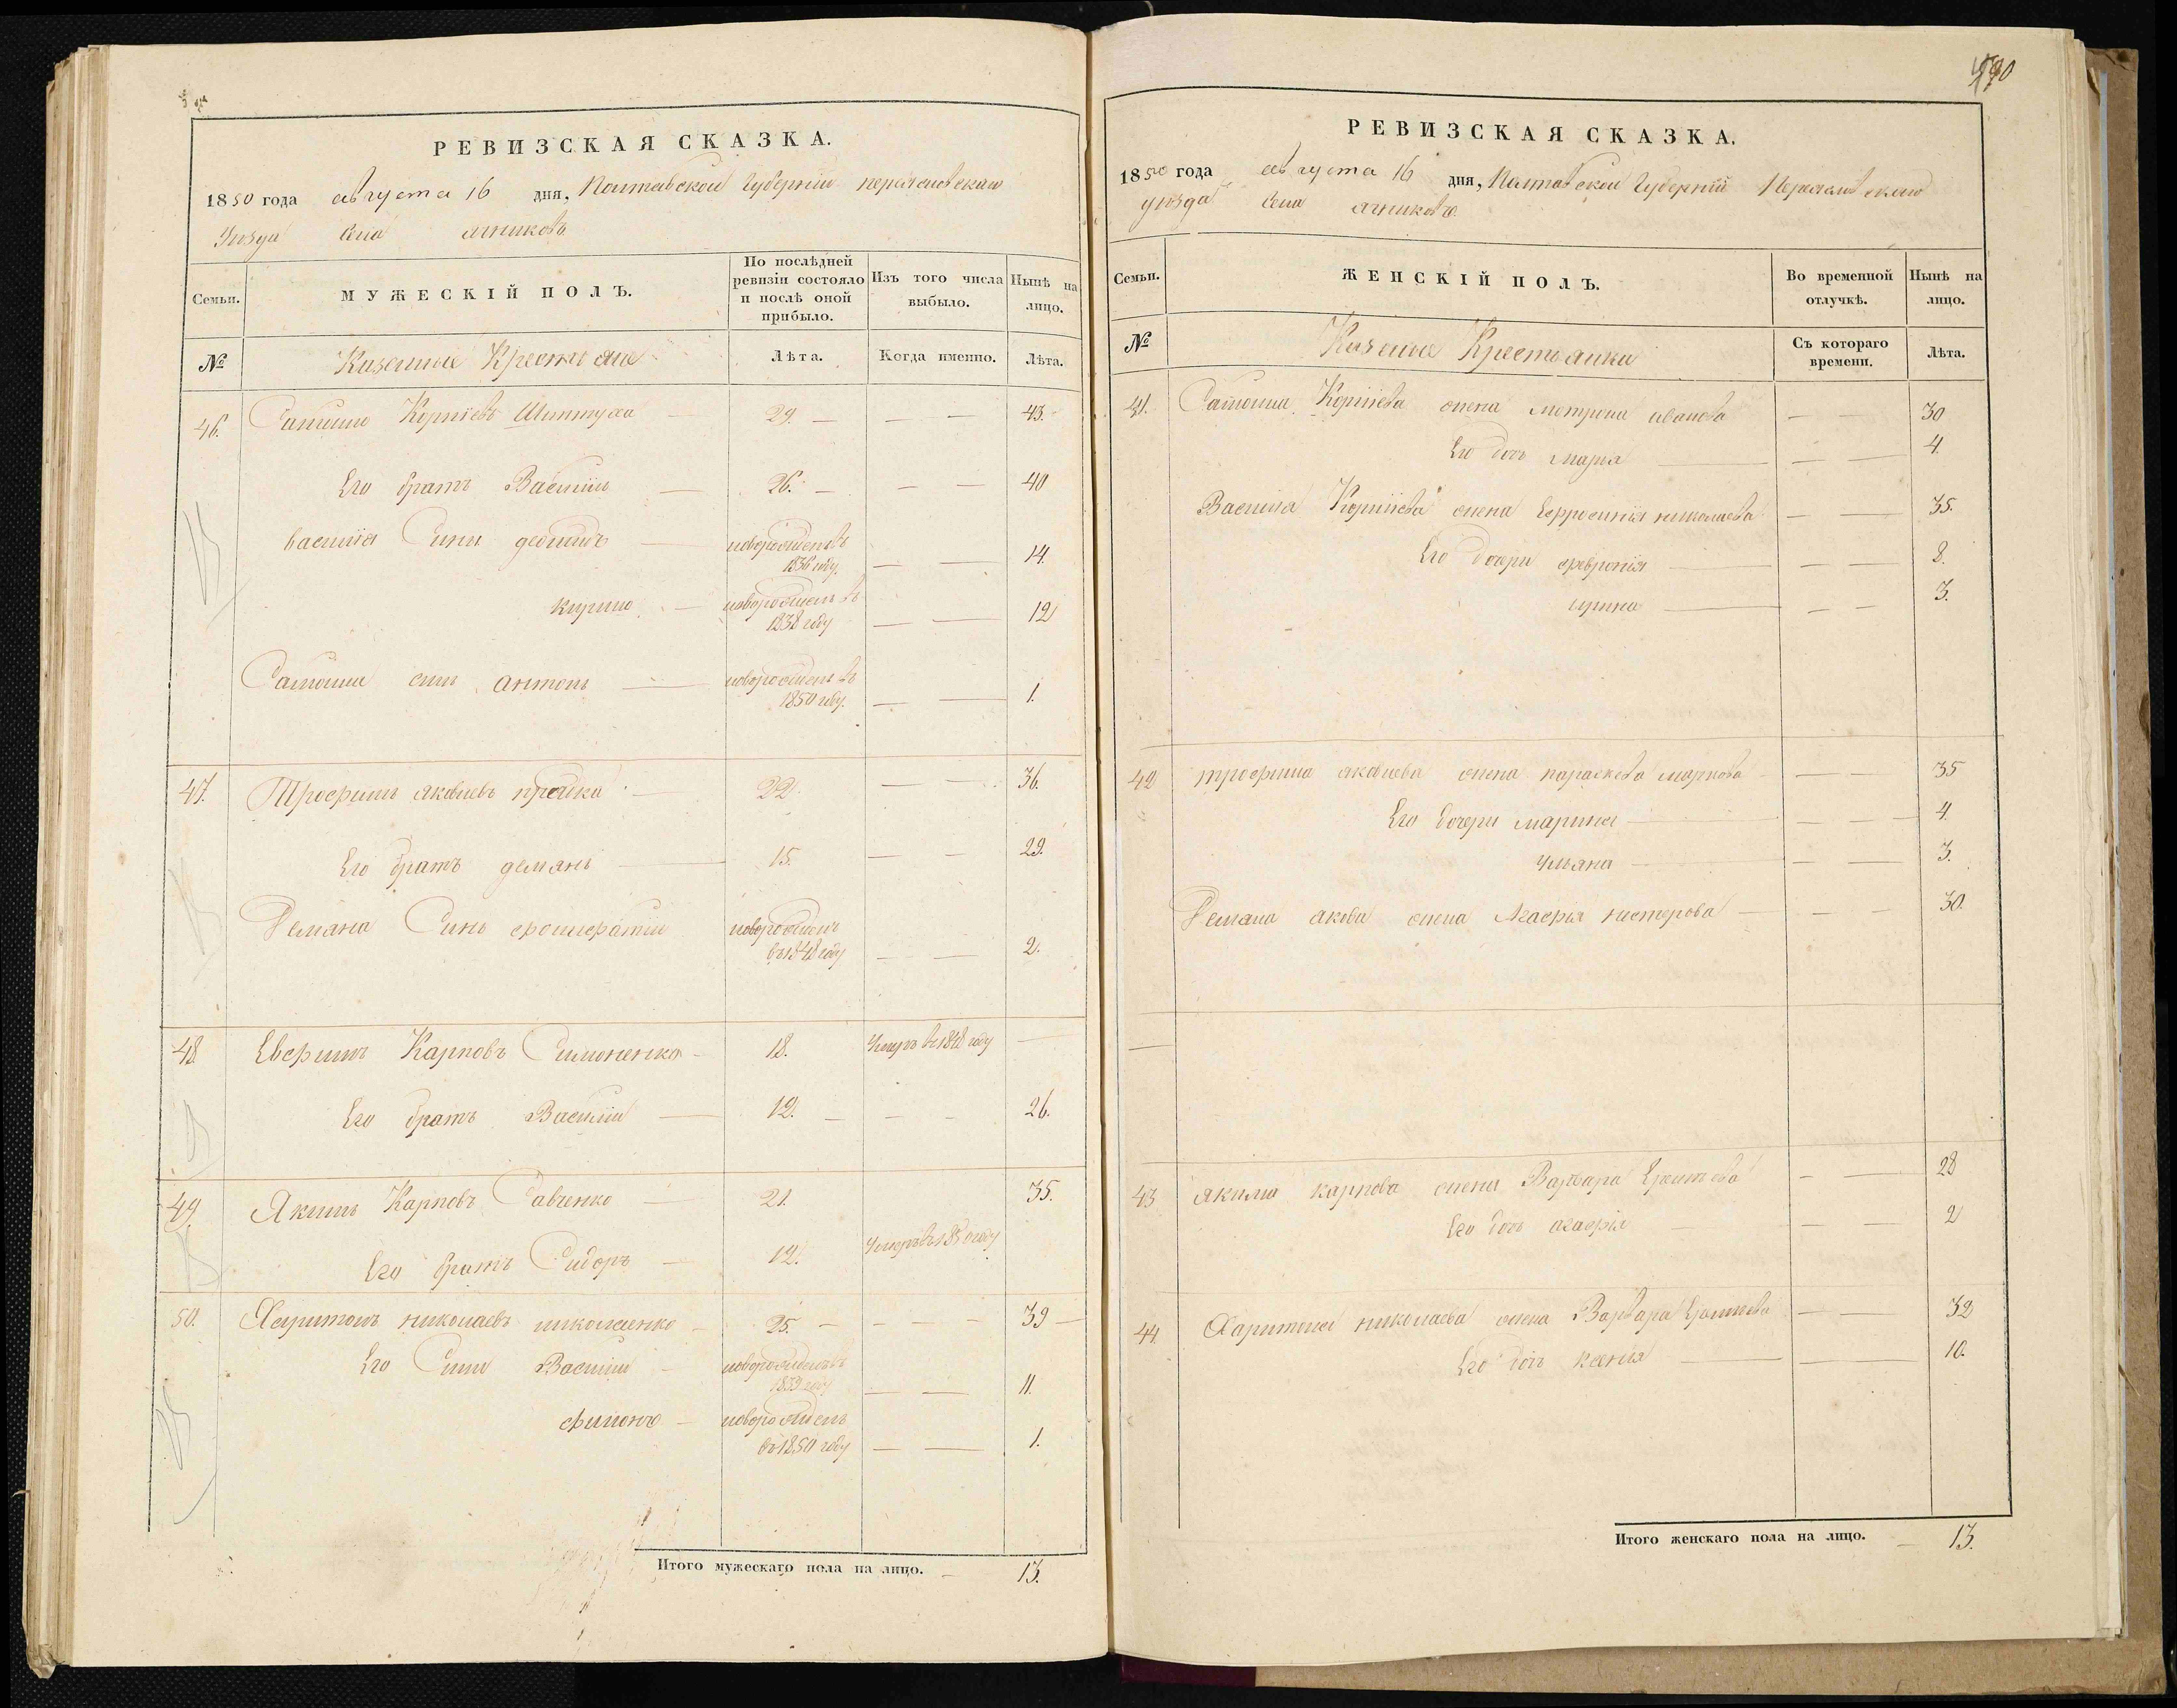 РЕВИЗСКАЯ СКАЗКА.
1850 года августа 16 дня, Полтавской Губернии переяславскаго
Уезда Села
Семьи.
МУЖЕСКІЙ ПОЛЪ.
По послѣдней ревизіи состояло и послѣ оной прибыло.
Изъ того числа выбыло.
Нынѣ на лицо.
№
Казенные Крестьяне
Лѣта.
Когда именно.
Лѣта.
46. Самойло Корніевъ 29. — — — 43.
Его братъ Василій — 26. — — — 40
василія Сини демидъ — новорожденъ въ 1836 году. — — 14.
кирило — новорожденъ въ 1838 году — — 12
Самойла син антонъ — новорожденъ въ 1850 году. — — 1.
47. Трофимъ яковлевъ — 22. — — 36.
Его братъ демянъ — 15. — — 29.
Демяна Синъ — новорожденъ въ 1848 году — — 2.
48 Евфимъ Карповъ Симоненко — 18. Умеръ в 1848 году —
Его братъ Василій — 12. — — — 26.
49. Якимъ Карповъ Савченко — 21. 35.
Его братъ Сидоръ — 12. Умеръ въ 1850 году
50. Харитонъ николаевъ николаенко — 25. — — — — 39 —
Его Сини Василій — новорожденъ въ 1839 году — — 11.
филонъ — новорожденъ въ 1850 году — — 1.
Итого мужескаго пола на лицо. — 13.
190
РЕВИЗСКАЯ СКАЗКА.
1850 года августа 16 дня, Полтавской Губерній Переяславскаго
уезда Села
Семьи.
ЖЕНСКІЙ ПОЛЪ.
Во временной отлучкѣ.
Нынѣ на лицо.
№
Казенные Крестьянки
Съ котораго времени.
Лѣта.
41. Самойла Корніева жена мотрина иванова — — 30
Его дочь марія — — — 4.
Василія Корніева жена Ефросинія николаева — — 35.
Его дочери февронія — — — 8.
ирина — — — 3.
42 трофима яковлева жена параскева маркова — — 35
Его дочери марина — — — 4.
Ульяна — — — 3.
Демяна якова жена Агафія нестерова — — — 30.
—
43 якима карпова жена Варвара — — 28
Его дочь агафія — — — 2
44. Харитона николаева жена Варвара — — 32
Его дочь ксенія — — 10.
Итого женскаго пола на лицо. — 13.